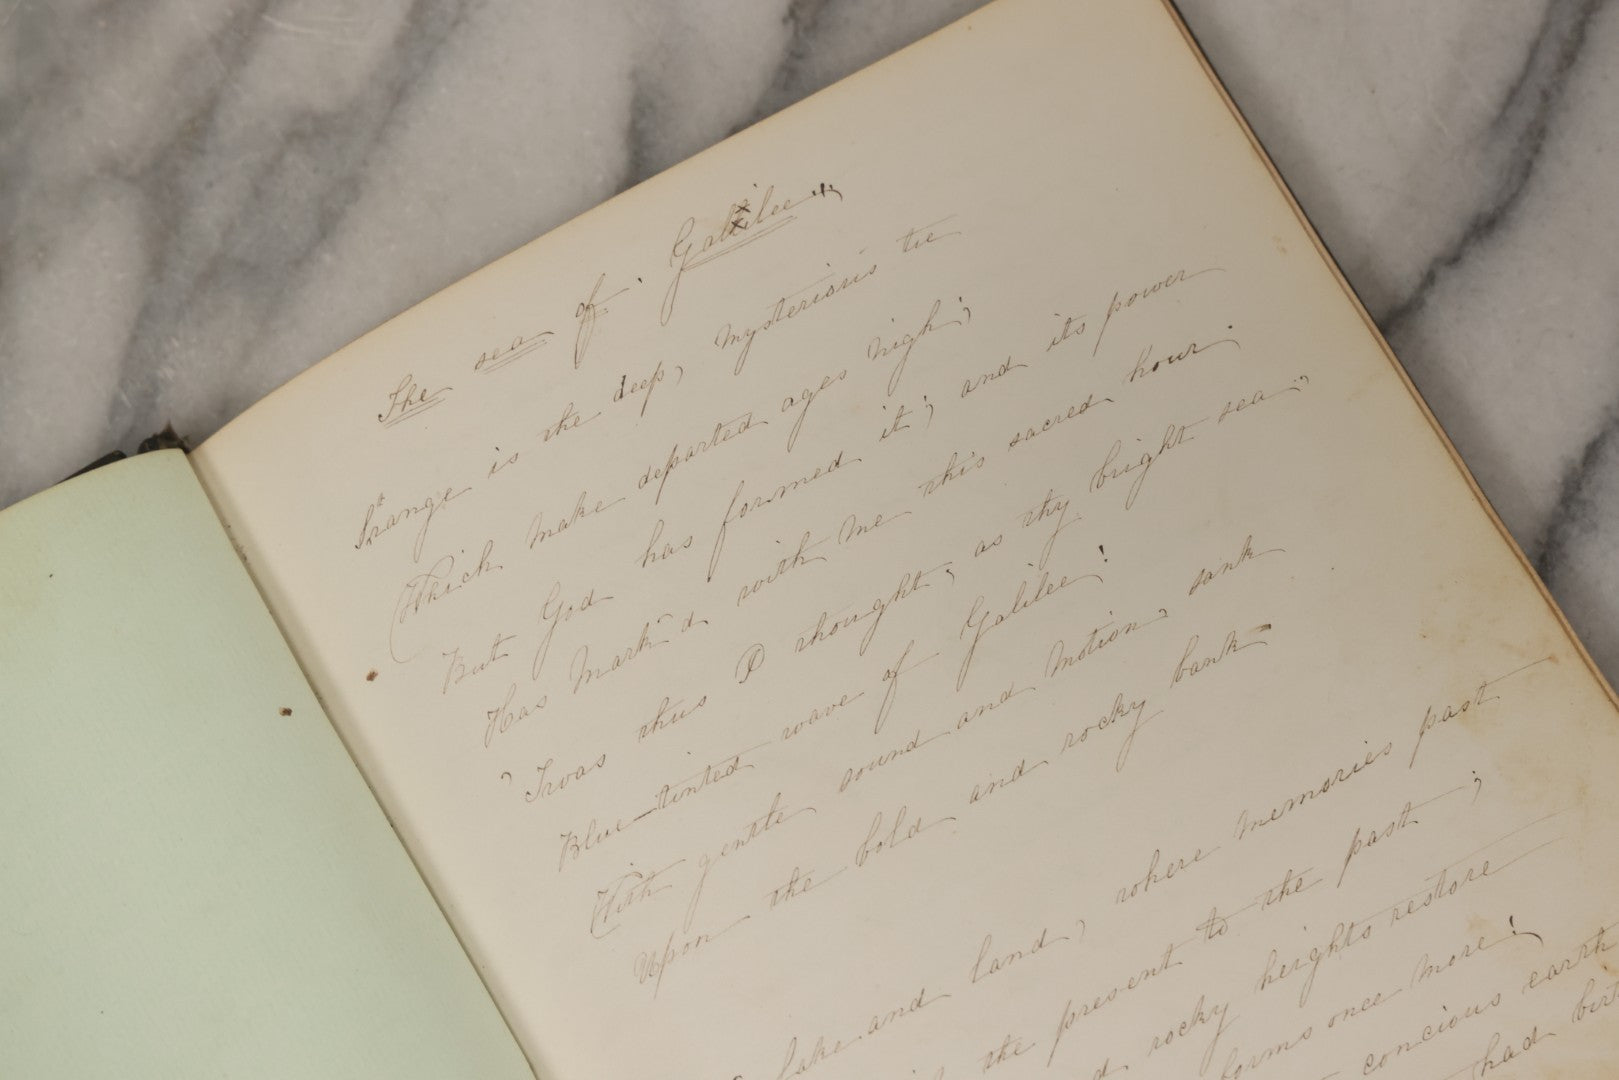 The sea of Galilee;
Strange is the deep, mysterious tie
Which make departed ages nigh;
But God has formed it; and its power
Has mark'd with me this sacred hour.
'Twas thus I thought, as thy bright sea,
Blue-tinted wave of Galilee!
With gentle sound and motion, sank
Upon the bold and rocky bank
lake and land, where memories past
the present to the past;
rocky heights restore
forms once more!
concious earth
had